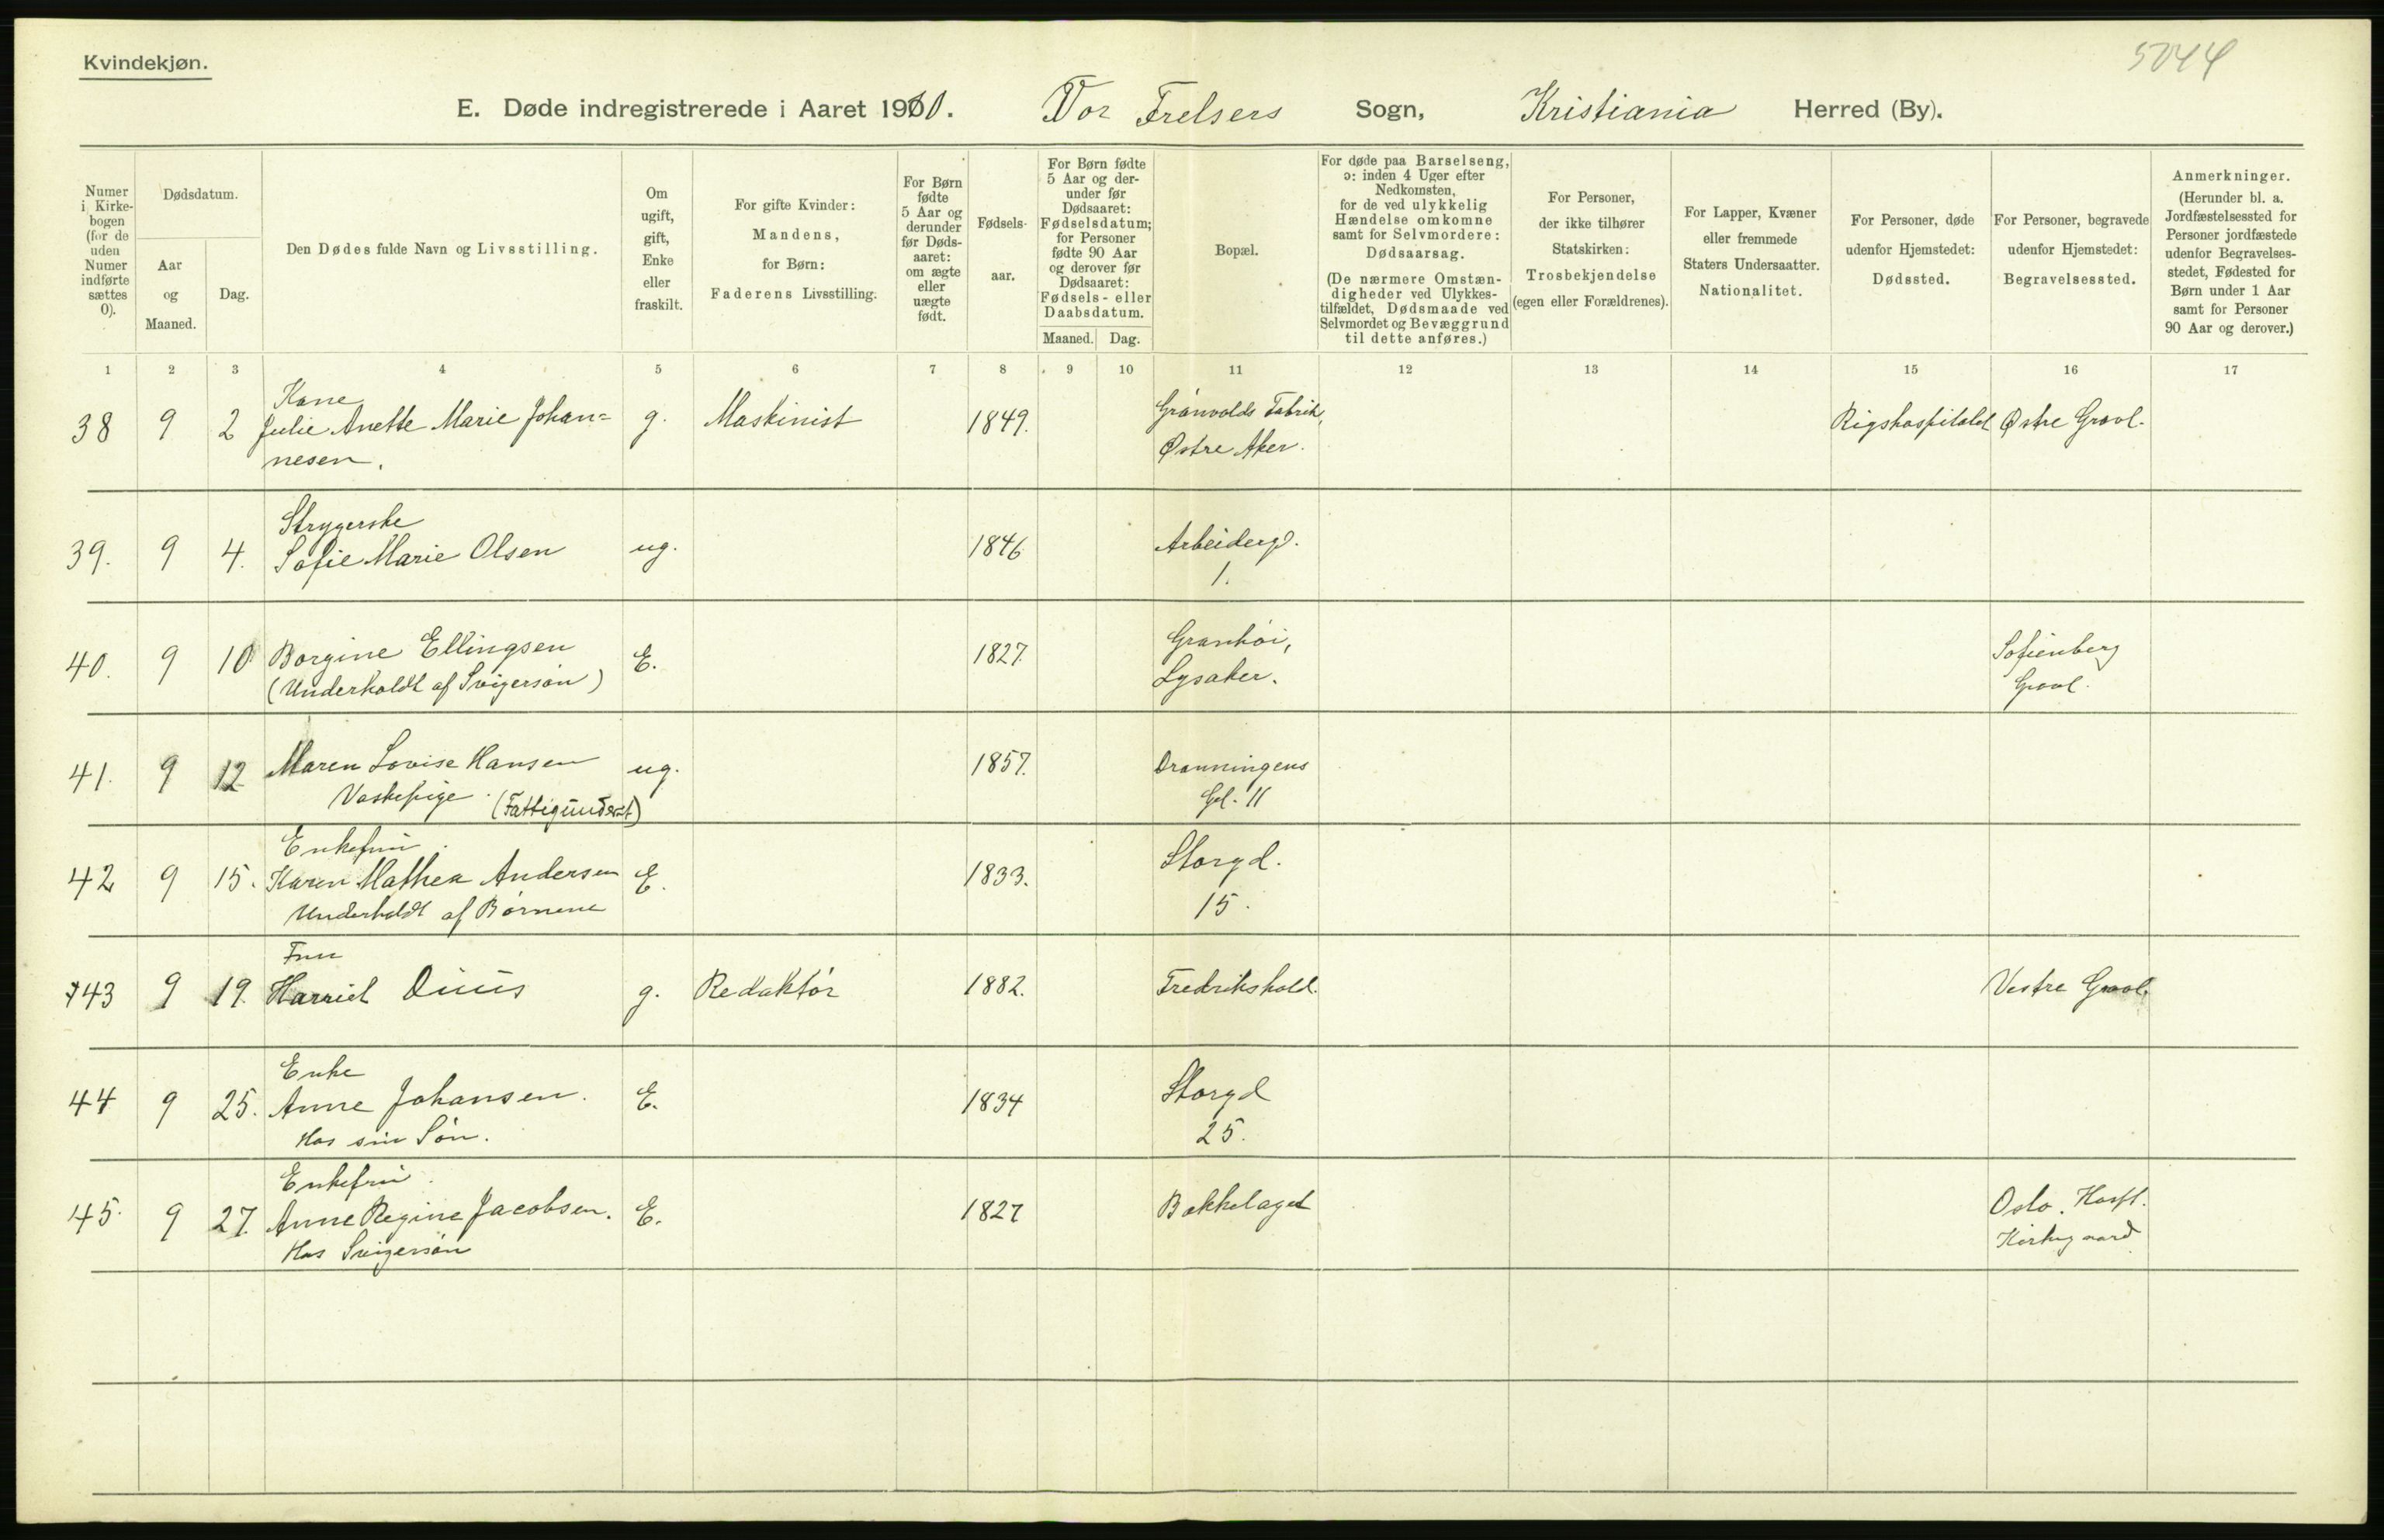 Kvindekjøn.
5044
E. Døde indregistrerede i Aaret 1910. Vor Frelsers Sogn, Kristiania Herred (By).
Numer i Kirkebogen (for de uden Numer indførte sættes 0).
Dødsdatum.
Aar og Maaned.
Dag.
Den Dødes fulde Navn og Livsstilling.
Om ugift, gift, Enke eller fraskilt.
For gifte Kvinder: Mandens, for Børn: Faderens Livsstilling.
For Børn fødte 5 Aar og derunder før Døds-aaret: om ægte eller uægte født.
Fødsels-aar.
For Børn fødte 5 Aar og der-under før Dødsaaret: Fødselsdatum; for Personer fødte 90 Aar og derover før Dødsaaret: Fødsels- eller Daabsdatum.
Maaned. Dag.
Bopæl.
For døde paa Barselseng, ɔ: inden 4 Uger efter Nedkomsten, for de ved ulykkelig Hændelse omkomne samt for Selvmordere: Dødsaarsag.
(De nærmere Omstæn-digheder ved Ulykkes-tilfældet, Dødsmaade ved Selvmordet og Bevæggrund til dette anføres.)
For Personer, der ikke tilhører Statskirken: Trosbekjendelse (egen eller Forældrenes).
For Lapper, Kvæner eller fremmede Staters Undersaatter. Nationalitet.
For Personer, døde udenfor Hjemstedet: Dødssted.
For Personer, begravede udenfor Hjemstedet: Begravelsessted.
Anmerkninger. (Herunder bl. a. Jordfæstelsessted for Personer jordfæstede udenfor Begravelses-stedet, Fødested for Børn under 1 Aar samt for Personer 90 Aar og derover.)
1 2 3 4 5 6 7 8 9 10 11 12 13 14 15 16 17
Kone
38 9 2 Julie Anette Marie Johan= g. Maskinist 1849. Grønvolds Fabrik, Rigshospitalet Østre Gravl.
nesen. Østre Aker.
Strygerske
39. 9 4. Sofie Marie Olsen ug. 1846 Arbeiderg.
1.
40. 9 10 Borgine Ellingsen E. 1827. Granhøi, Sofienberg
(Underholdt af Svigersøn) Lysaker. Gravl.
41. 9 12 Maren Lovise Hansen ug. 1857. Dronningens
Vaskepige (Fattigunderst) Gd. 11
Enkefru
42 9 15. Karen Mathea Andersen E. 1833. Storgd.
Underholdt af Børnene 15.
Fru
43 9 19. Harriet Duus g. Redaktør 1882. Fredrikshald. Vestre Gravl.
Enke
44 9 25. Anne Johansen. E. 1834 Storgd
Hos sin Søn. 25.
Enkefru
45. 9 27. Anne Regine Jacobsen. E. 1827 Bækkelaget Oslo Hosp.
Hos Svigersøn Kirkegaard